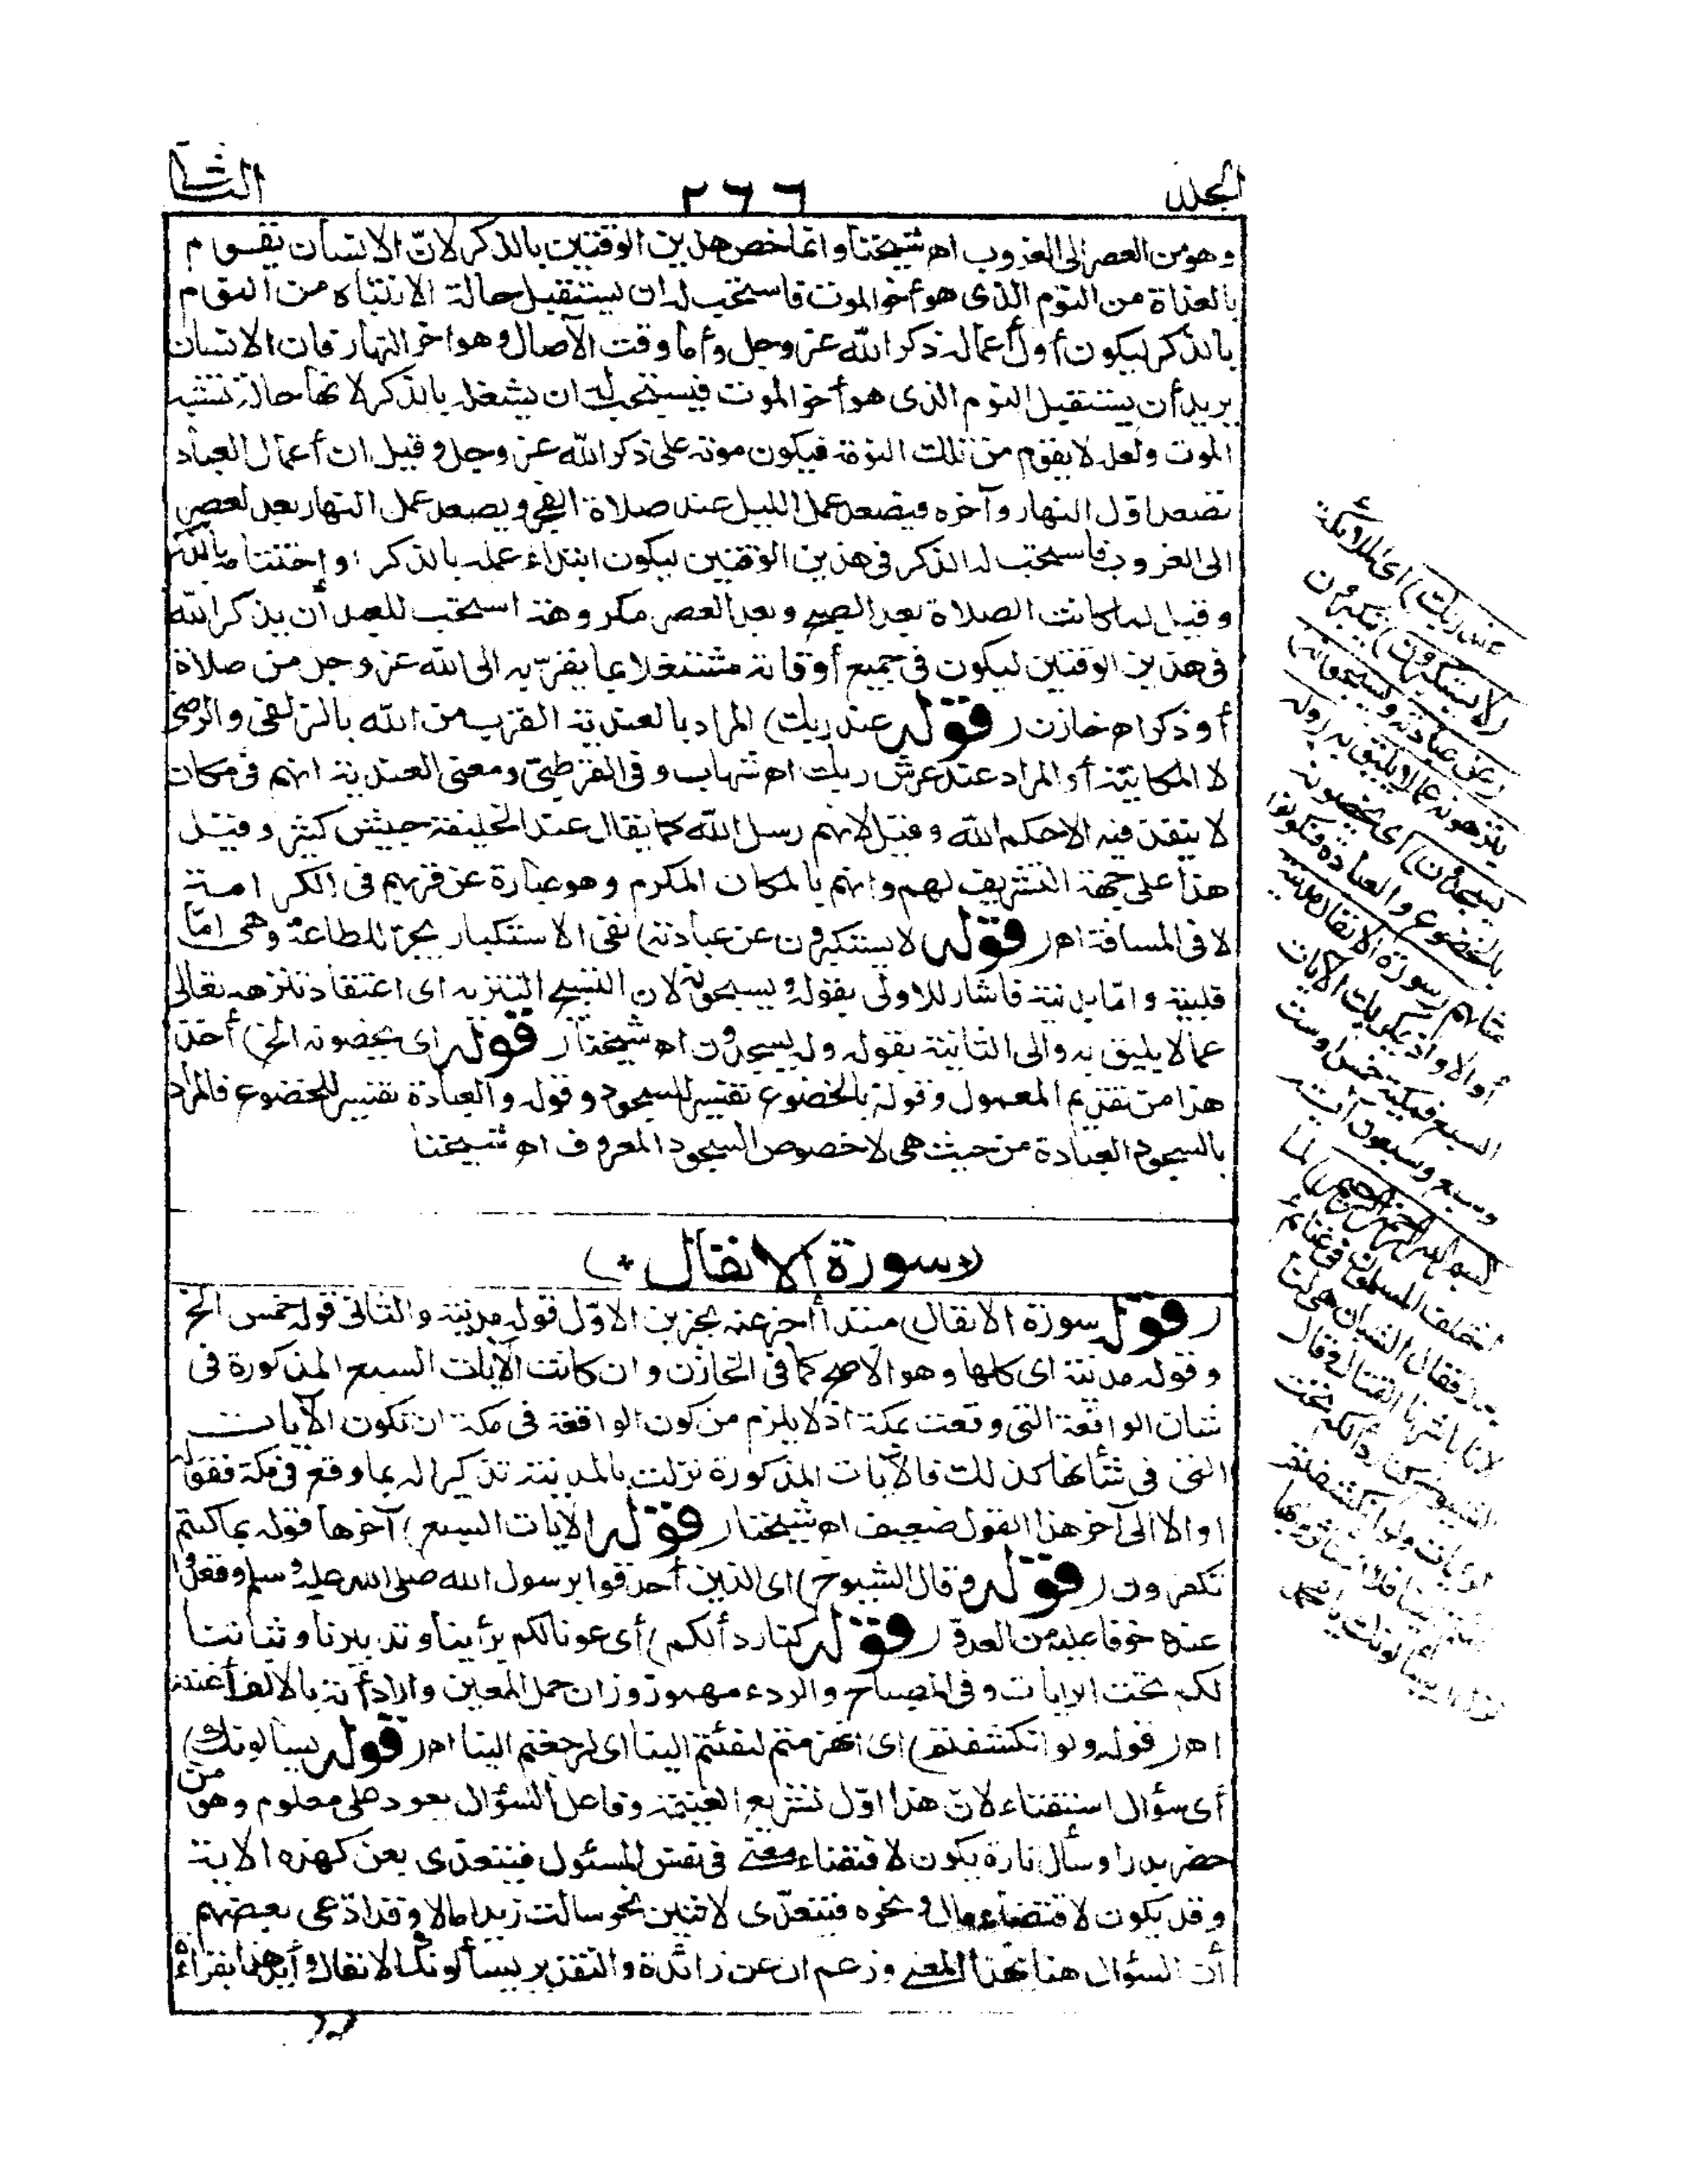 المجلد
٢٦٦
الثانى
وهو من العصر الى الغروب اه شيخنا وانما خص هذين الوقتين بالذكر لانّ الانسان يقوم
بالغداة من النوم الذى هو أخو الموت فاستحب له ان يستقبل حالة الانتباه من النوم
بالذكر ليكون أول أعماله ذكر الله عز وجل وأما وقت الآصال وهو اخر النهار فان الانسان
يريد أن يستقبل النوم الذى هو أخو الموت فيستحب له ان يشغله بالذكر لانها حالة تشبه
الموت ولعله لا يقوم من تلك النومة فيكون موته على ذكر الله عز وجل وقيل ان أعمال العباد
تصعد اوّل النهار وآخره فيصعد عمل الليل عند صلاة الفجر ويصعد عمل النهار بعد العصر
الى الغروب فاستحب له الذكر فى هذين الوقتين ليكون ابتداء عمله بالذكر واختتامه بالذكر
وقيل لما كانت الصلاة بعد الصبح وبعد العصر مكروهة استحب للعبد أن يذكر الله
فى هذين الوقتين ليكون فى جميع أوقاته مشتغلا بما يقرّبه الى الله عز وجل من صلاة
أو ذكر اه خازن (قوله عند ربك) المراد بالعندية القرب من الله بالزلفى والرضى
لا المكانية أو المراد عند عرش ربك اه شهاب وفى القرطبى ومعنى العندية انهم فى مكان
لا ينفذ فيه الا حكم الله وقيل لانهم رسل الله كما يقال عند الخليفة جيش كثير وقيل
هذا على جهة التشريف لهم وانهم بالمكان المكرم وهو عبارة عن قربهم فى الكرامة
لا فى المسافة اه (قوله لا يستكبرون عن عبادته) نفى الاستكبار يجرّ للطاعة وهى امّا
قلبية وامّا بدنية فاشار للاولى بقوله ويسبحونه لان التسبيح التنزيه اى اعتقاد تنزهه تعالى
عما لا يليق به والى الثانية بقوله وله يسجدون اه شيخنا (قوله اى يخضونه الخ) أخذ
هذا من تقديم المعمول وقوله بالخضوع تفسير للسجود وقوله والعبادة تفسير للخضوع فالمراد
بالسجود العبادة من حيث هى لا خصوص السجود المعروف اه شيخنا
(سورة الانفال)
(قوله سورة الانفال) مبتدأ أخبر عنه بخبرين الاوّل قوله مدنية والثانى قوله خمس الخ
وقوله مدنية اى كلها وهو الاصح كما فى الخازن وان كانت الآيات السبع المذكورة فى
شان الواقعة التى وقعت بمكة اذ لا يلزم من كون الواقعة فى مكة ان تكون الآيات
التى فى شأنها كذلك فالآيات المذكورة نزلت بالمدينة تذكيرا له بما وقع فى مكة فقوله
او الا الى آخر هذا القول ضعيف اه شيخنا (قوله الآيات السبع) آخرها قوله بما كنتم
تكفرون (قوله وقال الشيوخ) اى الذين أحدقوا برسول الله صلى الله عليه وسلم وقعدوا
عنده خوفا عليه من العدوّ (قوله كنا ردأ لكم) أى عونا لكم برأينا وتدبيرنا وثباتنا
لكم تحت الرايات وفى المصباح والردء مهموز وزان حمل المعين وارادأته بالالف أعنته
اه (قوله ولو انكشفتم) اى انهزمتم لفئتم الينا اى لرجعتم الينا اه (قوله يسألونك)
أى سؤال استفتاء لان هذا اوّل تشريع الغنيمة وفاعل السؤال يعود على معلوم وهو من
حضر بدرا وسأل تارة يكون لاقتضاء معنى فى نفس المسئول فيتعدّى بعن كهذه الاية
وقد يكون لاقتضاء مال ونحوه فيتعدّى لاثنين نحو سالت زيدا مالا وقد ادّعى بعضهم
أن السؤال هنا بهذا المعنى وزعم ان عن زائدة والتقدير يسألونك الانفال وأيد هذا بقراءة
عند ربك) اى الملائكة
(لا يستكبرون) يتكبرون
(عن عبادته ويسبحونه)
ينزهونه عما لا يليق به (وله
يسجدون) اى يخصونه
بالخضوع والعبادة فكونوا
مثلهم (سورة الانفال مدنية
أو الا واذ يمكر بك الآيات
السبع فمكية خمس او ست
وسبع وسبعون آية
(بسم الله الرحمن الرحيم) لما
اختلف المسلمون فى غنائم
بدر فقال الشبان هى لنا
لانا باشرنا القتال وقال
الشيوخ كنا ردأ لكم تحت
الرايات ولو انكشفتم
نزل (يسألونك) يا محمد